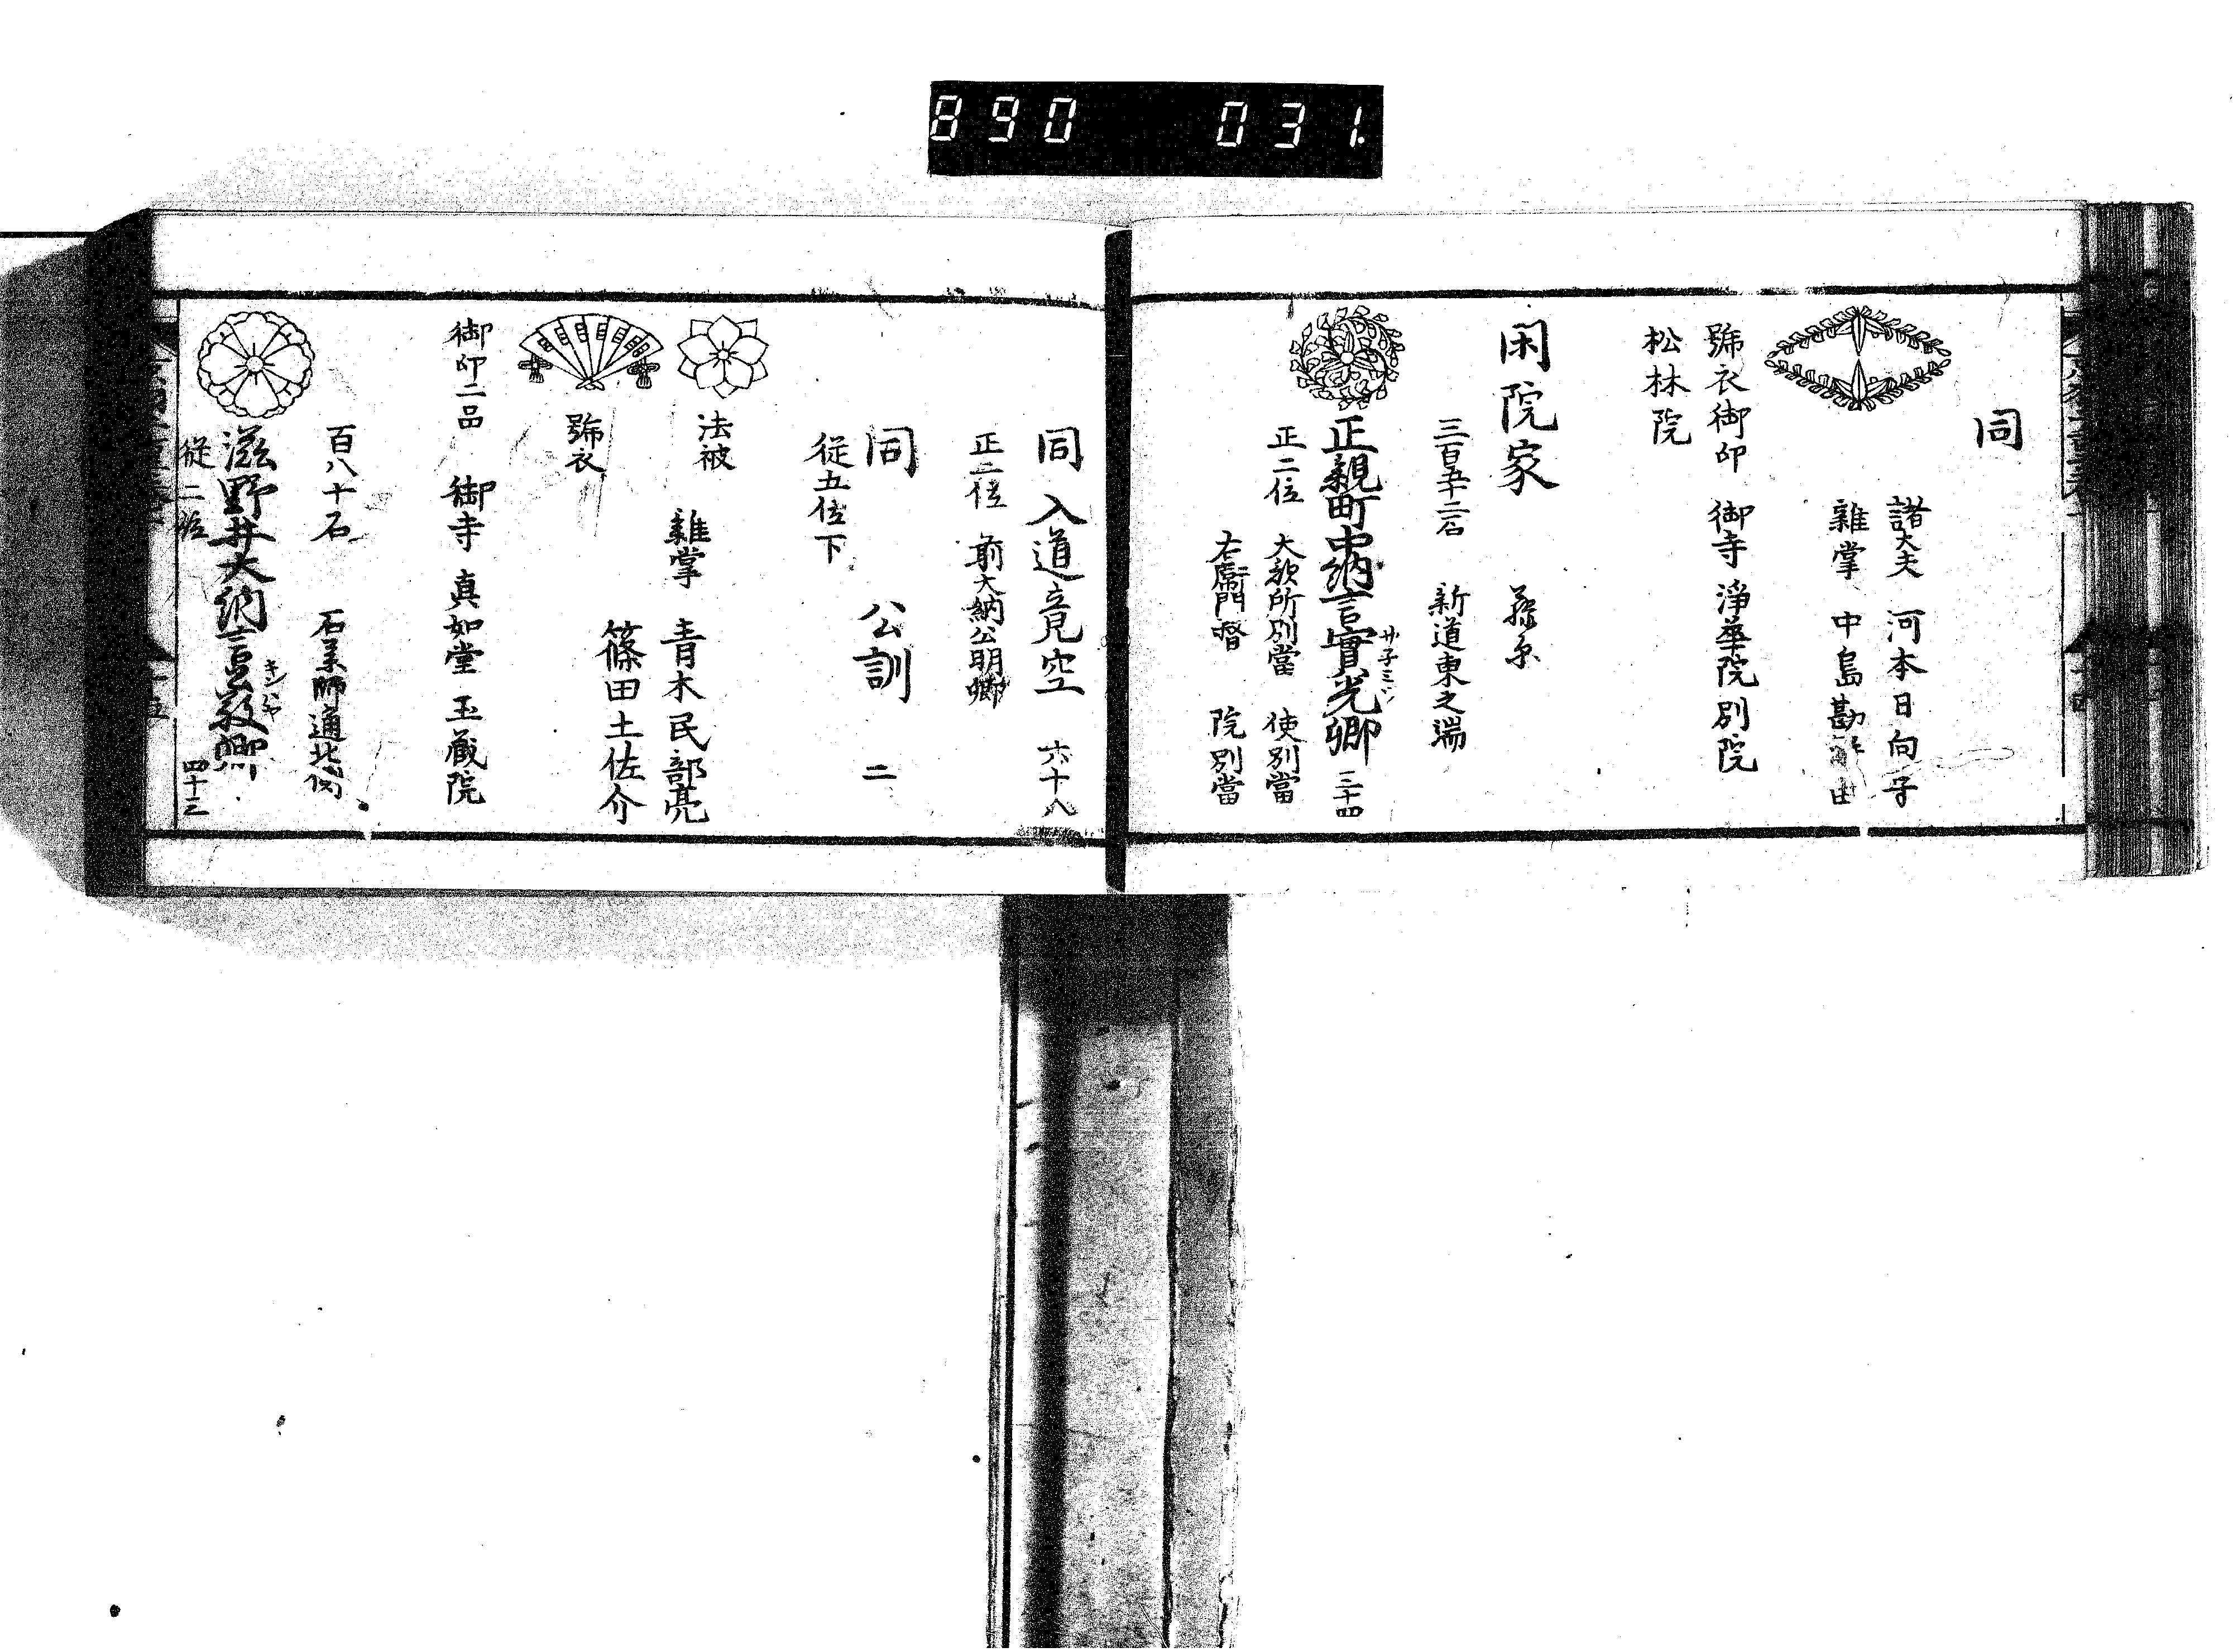 890 031.
同
諸大夫 河本日向守
雜掌 中島勘解由
號衣御印 御寺 淨華院別院
松林院
閑院家 藤原
三百五十二石 新道東之端
正親町中納言實光卿 三十四
サ子ミツ
正二位 大歌所別當 使別當
右衛門督 院別當
同 入道竟空 六十八
正二位 前大納公明卿
同 公訓 二
從五位下
法被 雜掌 青木民部亮
號衣 篠田土佐介
御印二品 御寺 真如堂 玉蔵院
百八十石 石薬師通北側
滋野井大納言公敬卿
從二位 四十三